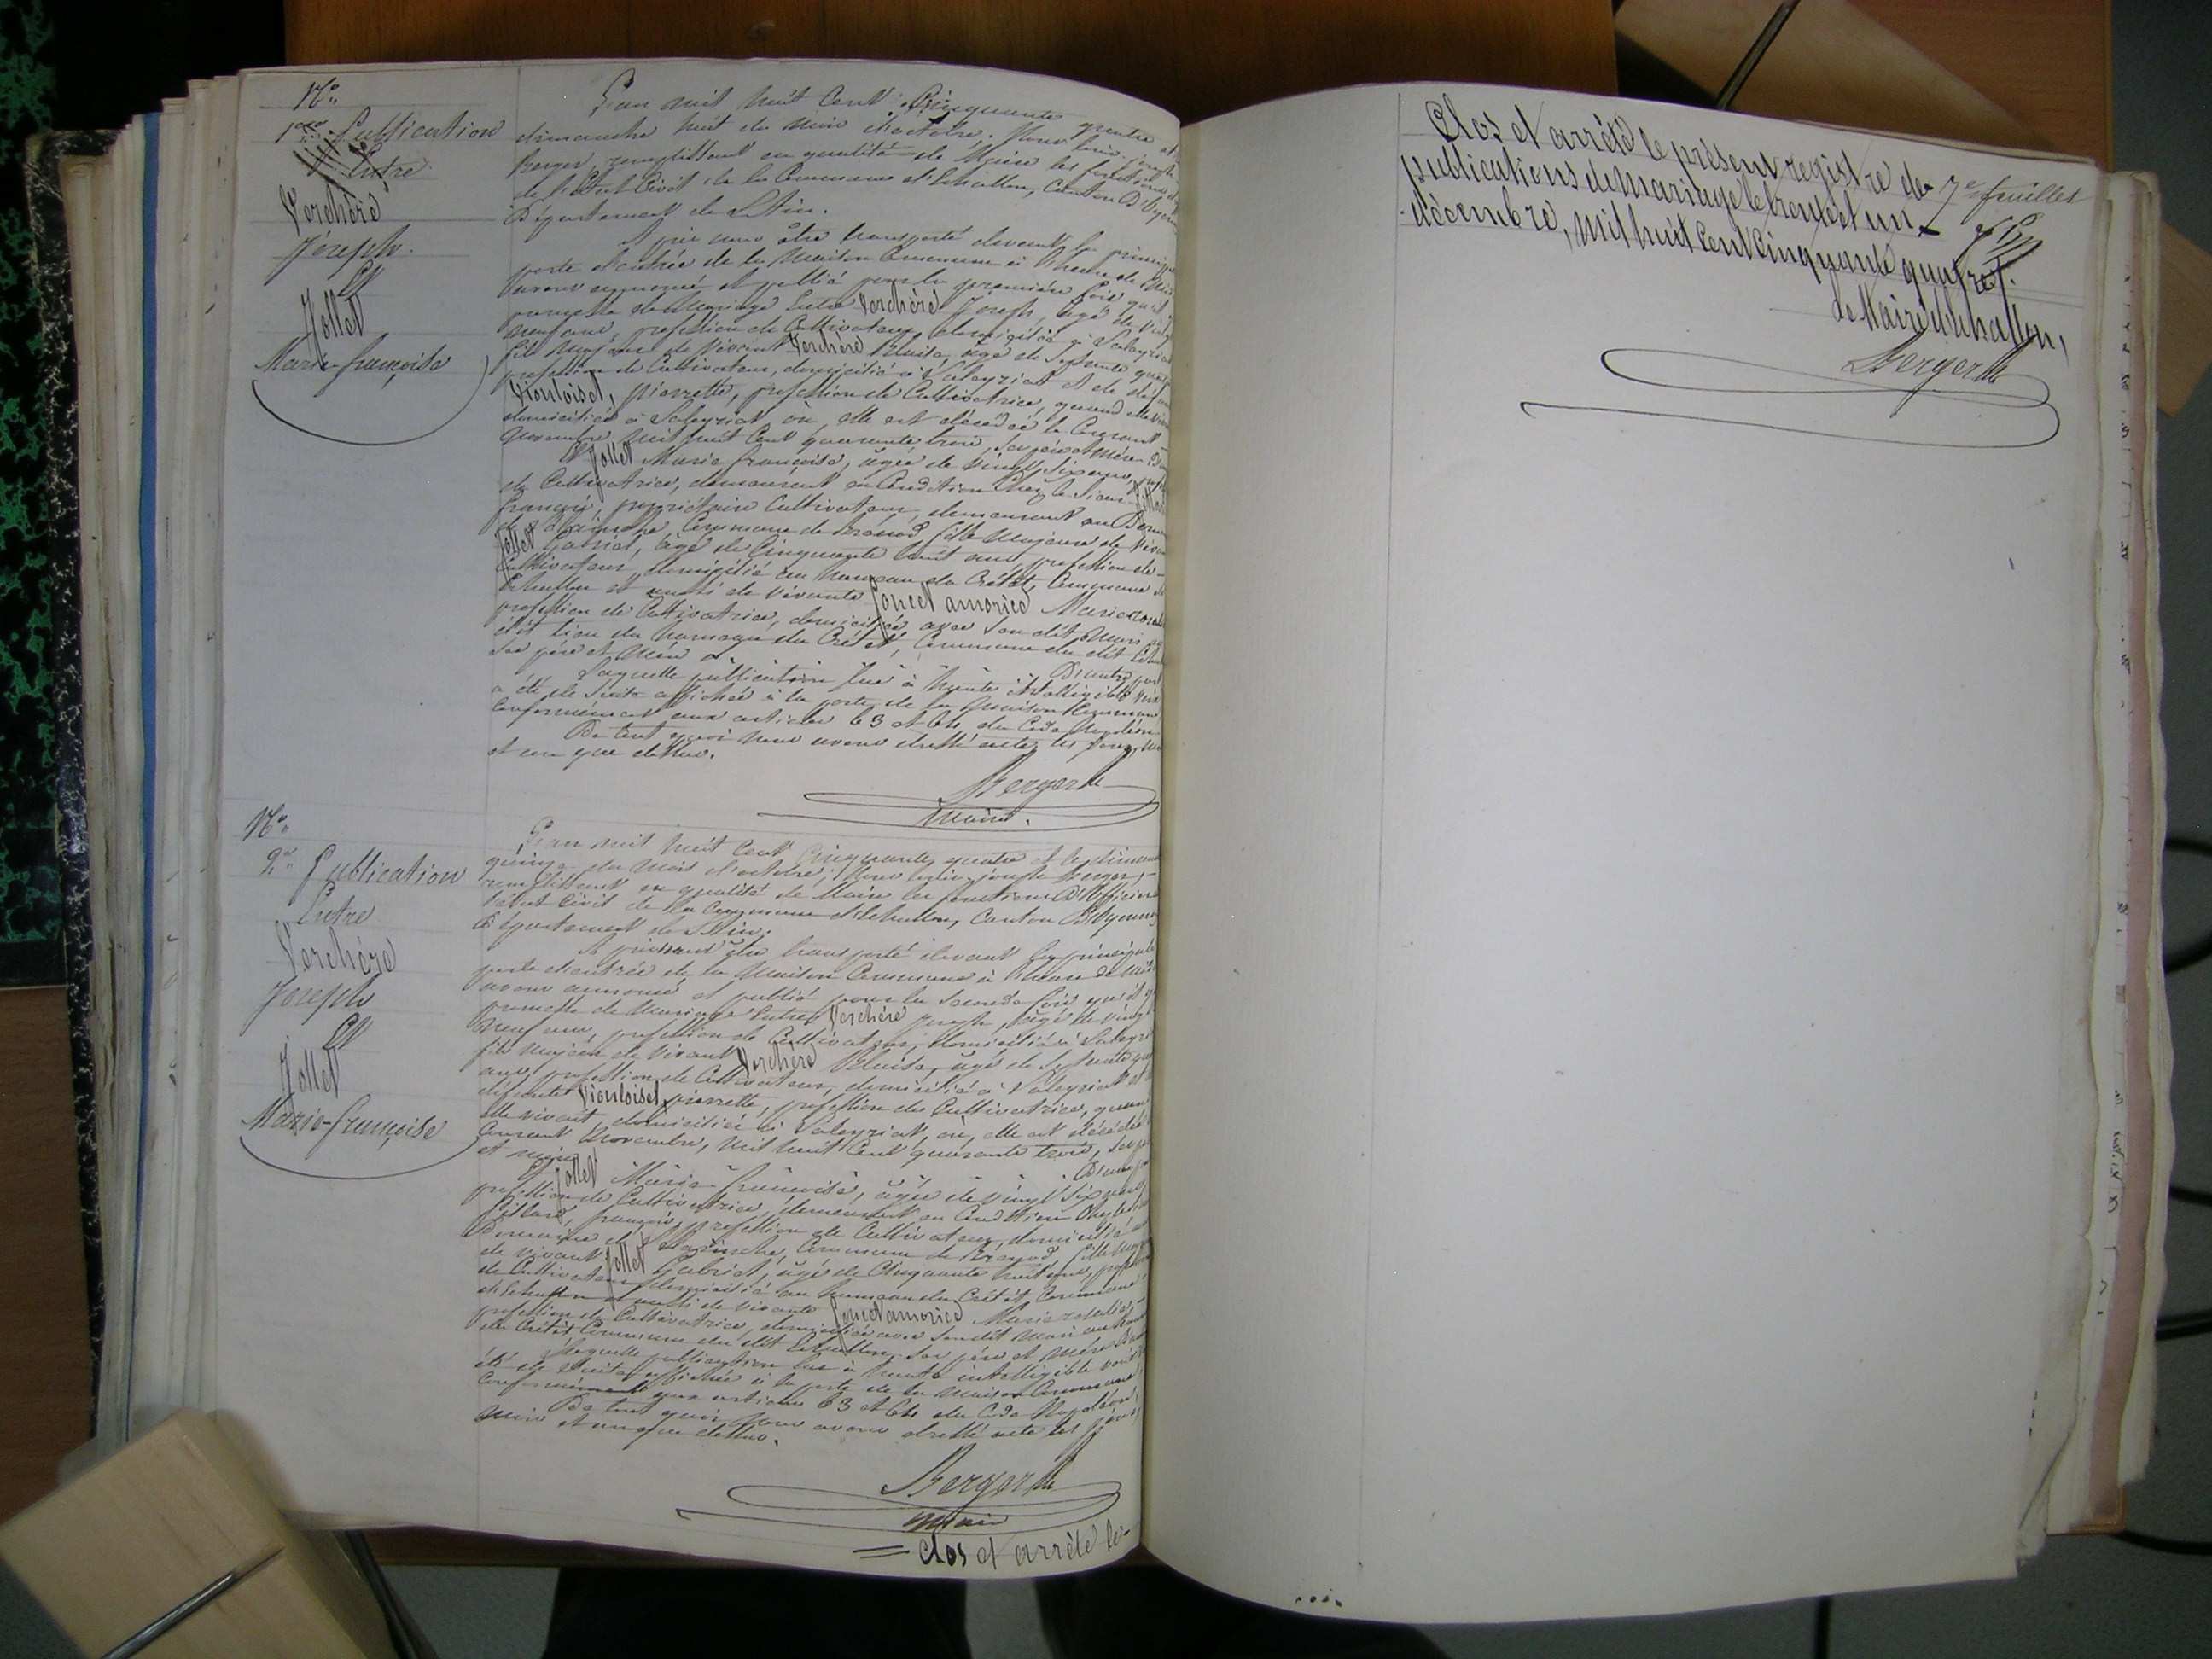 No
1ere Publication
Entre
Verchère
Joseph
Et
Jollet
Marie-françoise
L'an mil huit Cent Cinquante quatre et
dimanche huit du mois d'octobre. Nous
Berger, remplissant en qualité de Maire les fonctions
de l'état Civil de la Commune d'Echallon, Canton D'Oyon
Département de L'Ain.
Après nous être transporté devant la principa
porte d'entrée de la Maison Commune à l'heure de Midi
avons annoncé et publié pour la première fois qu'il
promesse de Mariage Entre Verchère Joseph, âgé de vingt
neuf ans, profession de Cultivateur, domicilié à Saleyriat
fils Majeur de vivant Verchère âgé de Septante quat
profession de Cultivateur, domicilié à Saleyriat et de
Viouloiset, pierrette, profession de Cultivatrice, quand elle viv
domiciliée à Saleyriat où, elle est décédée le Courant
Novembre, mil huit Cent quarante trois, Ses père et Mère
Et Jollet Marie françoise, âgée de vingt Six ans,
de Cultivatrice, demeurant en Condition Chez le Sieur
françois, propriétaire Cultivateur, demeurant au
Commune de fille Majeure de viva
Jollet Gabriel, âgé de Cinquante huit ans, profession de
Cultivateur, domicilié au hameau du Crétêt, Commune d'
Echallon et aussi de vivante poncet amoried Marie
profession de Cultivatrice, domiciliée avec Son dit Mari
dit lieu du hameau du Crétêt, Commune du dit Echa
Ses père et Mère D'autre part
Laquelle publication lue à haute intelligible voix
a été de Suite affichée à la porte de la Maison Commune
Conformément aux articles 63 et 64 du Code Napoléon
De tout quoi Nous avons dressé acte les jour, Mo
et an que dessus.
Berger
Maire.
No
2e Publication
Entre
Verchère
Joseph
Et
Jollet
Marie-françoise
L'an mil huit Cent Cinquante quatre et le dimanc
quinze du mois d'octobre; Nous joseph Berger,
remplissant en qualité de Maire les fonctions D'officier
l'état Civil de la Commune d'Echallon, Canton D'Oyonna
Département de L'Ain.
Après nous être transporté devant la principale
porte d'entrée de la Maison Commune à l'heure de Midi
avons annoncé et publié pour la Seconde fois qu'il y
promesse de Mariage Entre Verchère Joseph, âgé de vingt
neuf ans, profession de Cultivateur, domicilié à Saleyri
fils Majeur de vivant Verchère âgé de Septante qua
ans, profession de Cultivateur, domicilié à Saleyriat et
défunte Viouloiset, pierrette, profession de Cultivatrice, quan
elle vivait, domiciliée à Saleyriat, où, elle est décédée
Courant Novembre, mil huit Cent quarante trois, Ses pè
et mère D'une p
Et Jollet Marie-françoise, âgée de vingt Six ans,
profession de Cultivatrice, demeurant en Condition Chez le
françois, profession de Cultivateur, domicilié
Domaine de Commune de fille Maj
de vivant Jollet Gabriel, âgé de Cinquante huit ans, prof
de Cultivateur, domicilié au hameau du Crétêt, Commune
d'Echallon et aussi de vivante poncet amoried Marie
profession de Cultivatrice, domiciliée avec Son dit Mari au
du Crétêt, Commune du dit Echallon, Ses père et Mère
Laquelle publication lue à haute intelligible voix
été de Suite affichée à la porte de la Maison Commune,
Conformément aux articles 63 et 64 du Code Napoléon,
De tout quoi Nous avons dressé acte les jour,
Mois et an que dessus.
Berger
Maire
= Clos et arrêté le-
Clos et arrêté le présent registre de 7e feuillet
publications de mariage le trente et un
décembre, mil huit Cent Cinquante quatre.
Le Maire d'Echallon,
Berger